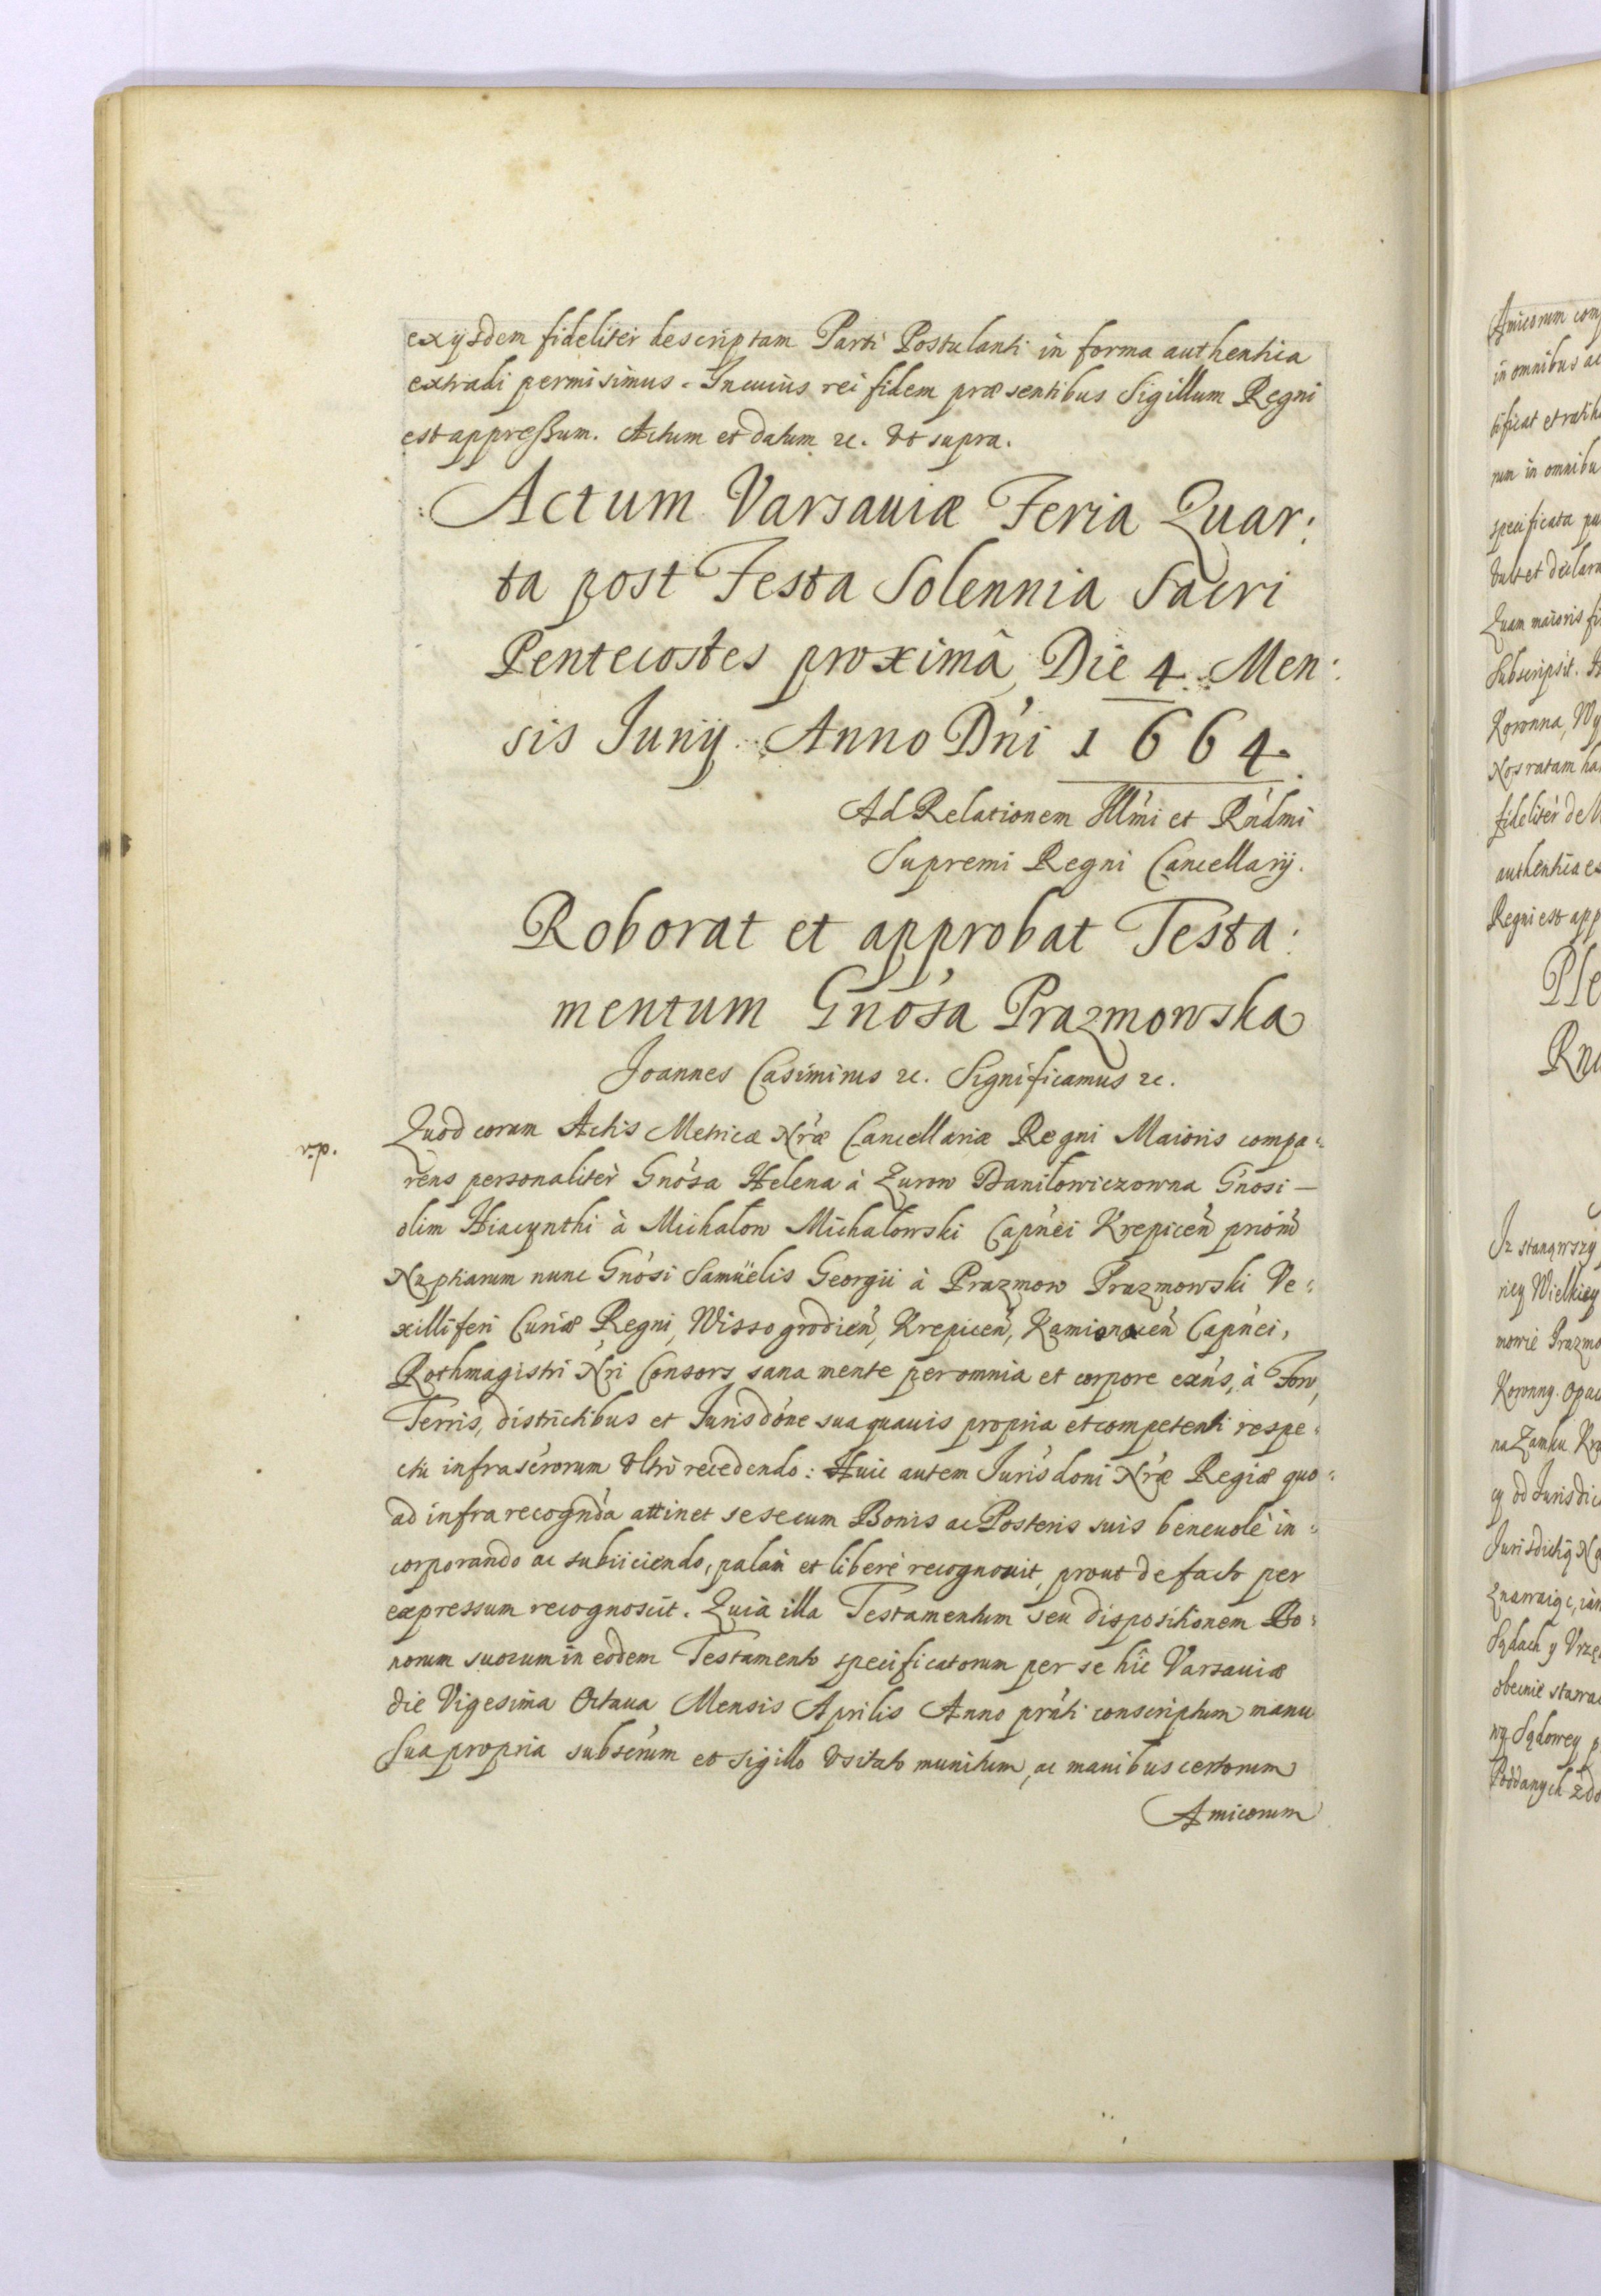 ex ijsdem fideliter descriptam Parti Postulanti in forma authentica
extradi permisimus. In cuius rei fidem præsentibus Sigillum Regni
est appressum. Actum et datum &c. Vt supra.
Actum Varsauiæ Feria Quar:
ta post Festa Solennia Sacri
Pentecostes proximâ, Die 4. Men:
sis Junij. Anno Dńi 1664.
Ad Relationem Illḿi et Rńdmi
Supremi Regni Cancellarij.
Roborat et approbat Testa:
mentum Gnósa Prazmowska
Joannes Casimirus &c. Significamus &c.
v.p.
Quod coram Actis Metricæ Nŕæ Cancellariæ Regni Maioris compa:
rens personaliter Gnósa Helena à Zurow Daniłowiczowna Gńosi
olim Hiacynthi à Michałow Michałowski Capńei Krepiceń priom̃
Nuptiarum nunc Gnósi Samüelis Georgii à Prazmow Prazmowski Ve:
xilliferi Curiæ Regni, Wissogrodień, Krepiceń, Kamionaceń Capńei,
Rothmagistri Nŕi Consors sana mente per omnia et corpore exńs, à Foro,
Terris, districtibus et Jurisdóne sua quauis propria et competenti respe:
ctu infrasćrorum Vltrò recedendo: Huic autem Jurisdoni Nŕæ Regiæ quo:
ad infra recognda attinet se se cum Bonis ac Posteris suis beneuolè in:
corporando ac subiiciendo, palàm et liberè recognouit, prout de facto per
expressum recognoscit. Quia illa Testamentum seu dispositionem Bo:
norum suorum in eodem Testamento specificatorum per se hîc Varsauiæ
die Vigesima Octaua Mensis Aprilis Anno prńti conscriptum manu
Sua propria subsćrum et sigillo Vsitato munitum, ac manibus certorum
Amicorum
Amicorum
in omnibus ac
tificat et ratih
rum in omnibu
specificata
Vult et declara
Quam maioris
Subscripsit.
Koronna,
Nos ratam ha
fideliter de
authentica
Regni est app
Iz stanąwszy
Wielkiey
mowie Prazmo
Koronny.
na Zamku
od Jurisdic
Jurisdictią
Sądach y Vrzę
obecnie
Sądowey
Poddanych